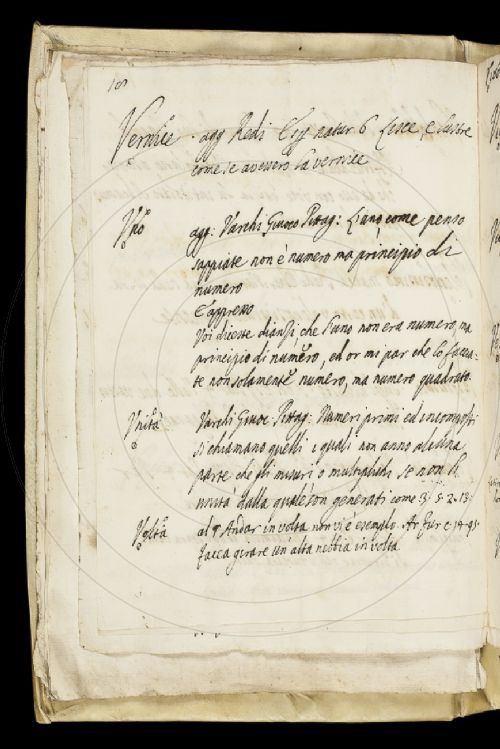 Vernice agg Redi Esp natur 6 Lisce, e lustre
come se avessero la vernice
Vno agg: Varchi Giuoco Pittag: L'uno come penso
sappiate non è numero ma principio di
numero
E appresso
Voi diceste dianzi che l'uno non era numero, ma
principio di numero, ed or mi par che lo faccia-
te non solamente numero, ma numero quadrato.
Vnità Varchi Giuoc Pittag: Numeri primi ed incomposti
si chiamano quelli i quali non anno alcuna
parte che gli misuri o multiplichi se non l'
unità dalla quale son generati come 3. 5. 2. 13.
Volta al § Andar in volta non vi è esempio. Ar Fur c 14. 95.
facca girare un' alta nebbia in volta